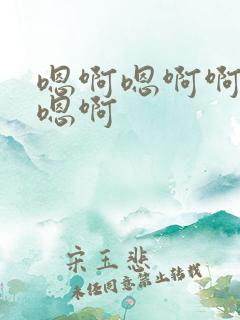 嗯啊嗯啊啊
嗯啊
宋玉悲
未经同意禁止转载